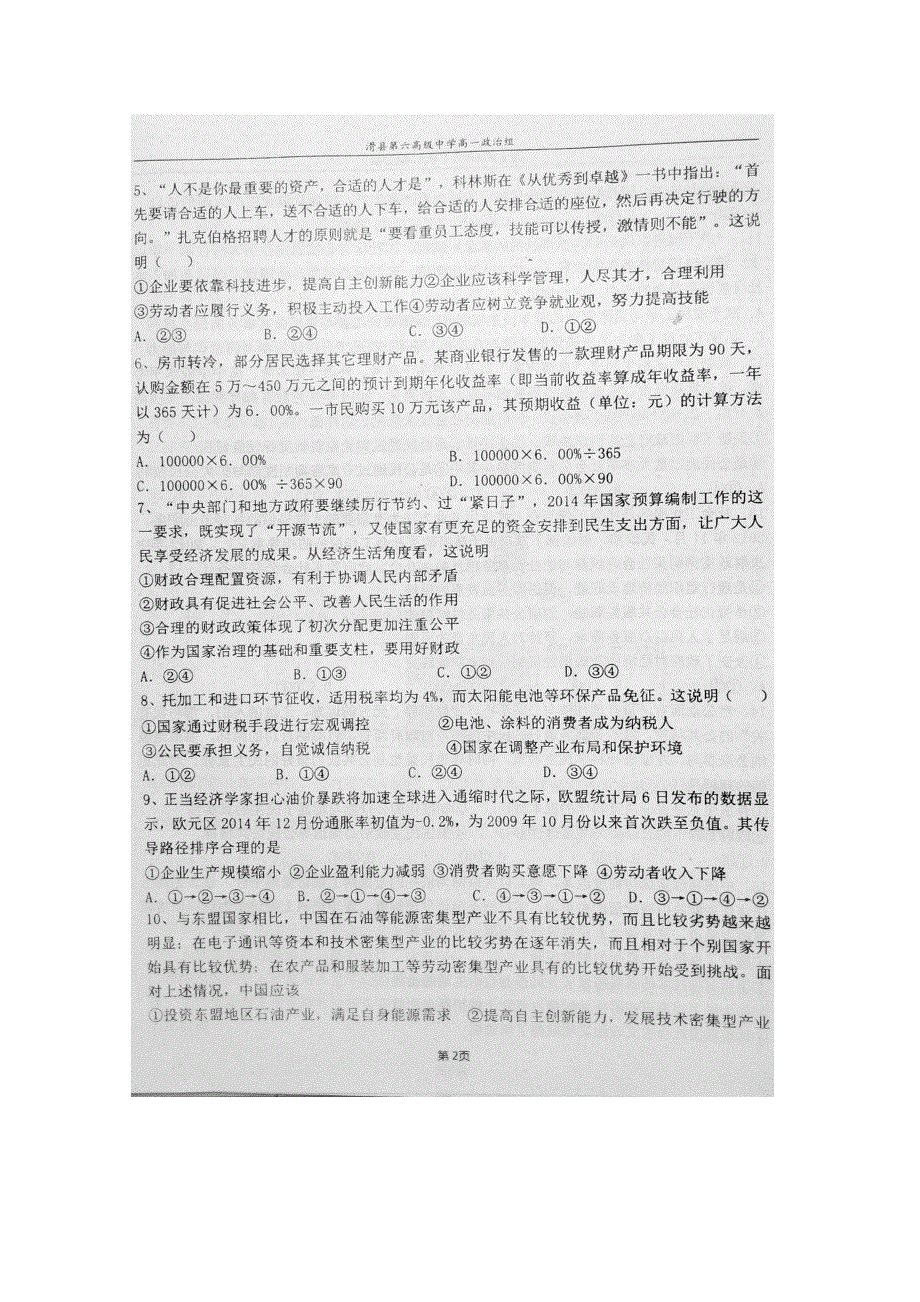 滑县第六高级中学高一政治组
5、“人不是你最重要的资产，合适的人才是”，科林斯在《从优秀到卓越》一书中指出：“首
先要请合适的人上车，送不合适的人下车，给合适的人安排合适的座位，然后再决定行驶的方
向。”扎克伯格招聘人才的原则就是“要看重员工态度，技能可以传授，激情则不能”。这说
明（ ）
①企业要依靠科技进步，提高自主创新能力②企业应该科学管理，人尽其才，合理利用
③劳动者应履行义务，积极主动投入工作④劳动者应树立竞争就业观，努力提高技能
A．②③ B．②④ C．③④ D．①②
6、房市转冷，部分居民选择其它理财产品。某商业银行发售的一款理财产品期限为 90 天，
认购金额在 5 万～450 万元之间的预计到期年化收益率（即当前收益率算成年收益率，一年
以 365 天计）为 6．00%。一市民购买 10 万元该产品，其预期收益（单位：元）的计算方法
为（ ）
A．100000×6．00% B．100000×6．00%÷365
C．100000×6．00% ÷365×90 D．100000×6．00%×90
7、“中央部门和地方政府要继续厉行节约、过“紧日子”，2014 年国家预算编制工作的这
一要求，既实现了“开源节流”，又使国家有更充足的资金安排到民生支出方面，让广大人
民享受经济发展的成果。从经济生活角度看，这说明
①财政合理配置资源，有利于协调人民内部矛盾
②财政具有促进社会公平、改善人民生活的作用
③合理的财政政策体现了初次分配更加注重公平
④作为国家治理的基础和重要支柱，要用好财政
A．②④ B．①③ C．①② D．③④
8、托加工和进口环节征收，适用税率均为 4%，而太阳能电池等环保产品免征。这说明（ ）
①国家通过财税手段进行宏观调控 ②电池、涂料的消费者成为纳税人
③公民要承担义务，自觉诚信纳税 ④国家在调整产业布局和保护环境
A．①② B．①④ C．②④ D．③④
9、正当经济学家担心油价暴跌将加速全球进入通缩时代之际，欧盟统计局 6 日发布的数据显
示，欧元区 2014 年 12 月份通胀率初值为-0.2%，为 2009 年 10 月份以来首次跌至负值。其传
导路径排序合理的是
①企业生产规模缩小 ②企业盈利能力减弱 ③消费者购买意愿下降 ④劳动者收入下降
A．①→②→③→④ B．②→①→④→③ C．④→③→①→② D．③→①→④→②
10、与东盟国家相比，中国在石油等能源密集型产业不具有比较优势，而且比较劣势越来越
明显；在电子通讯等资本和技术密集型产业的比较劣势在逐年消失，而且相对于个别国家开
始具有比较优势；在农产品和服装加工等劳动密集型产业具有的比较优势开始受到挑战。面
对上述情况，中国应该
①投资东盟地区石油产业，满足自身能源需求 ②提高自主创新能力，发展技术密集型产业
第 2页